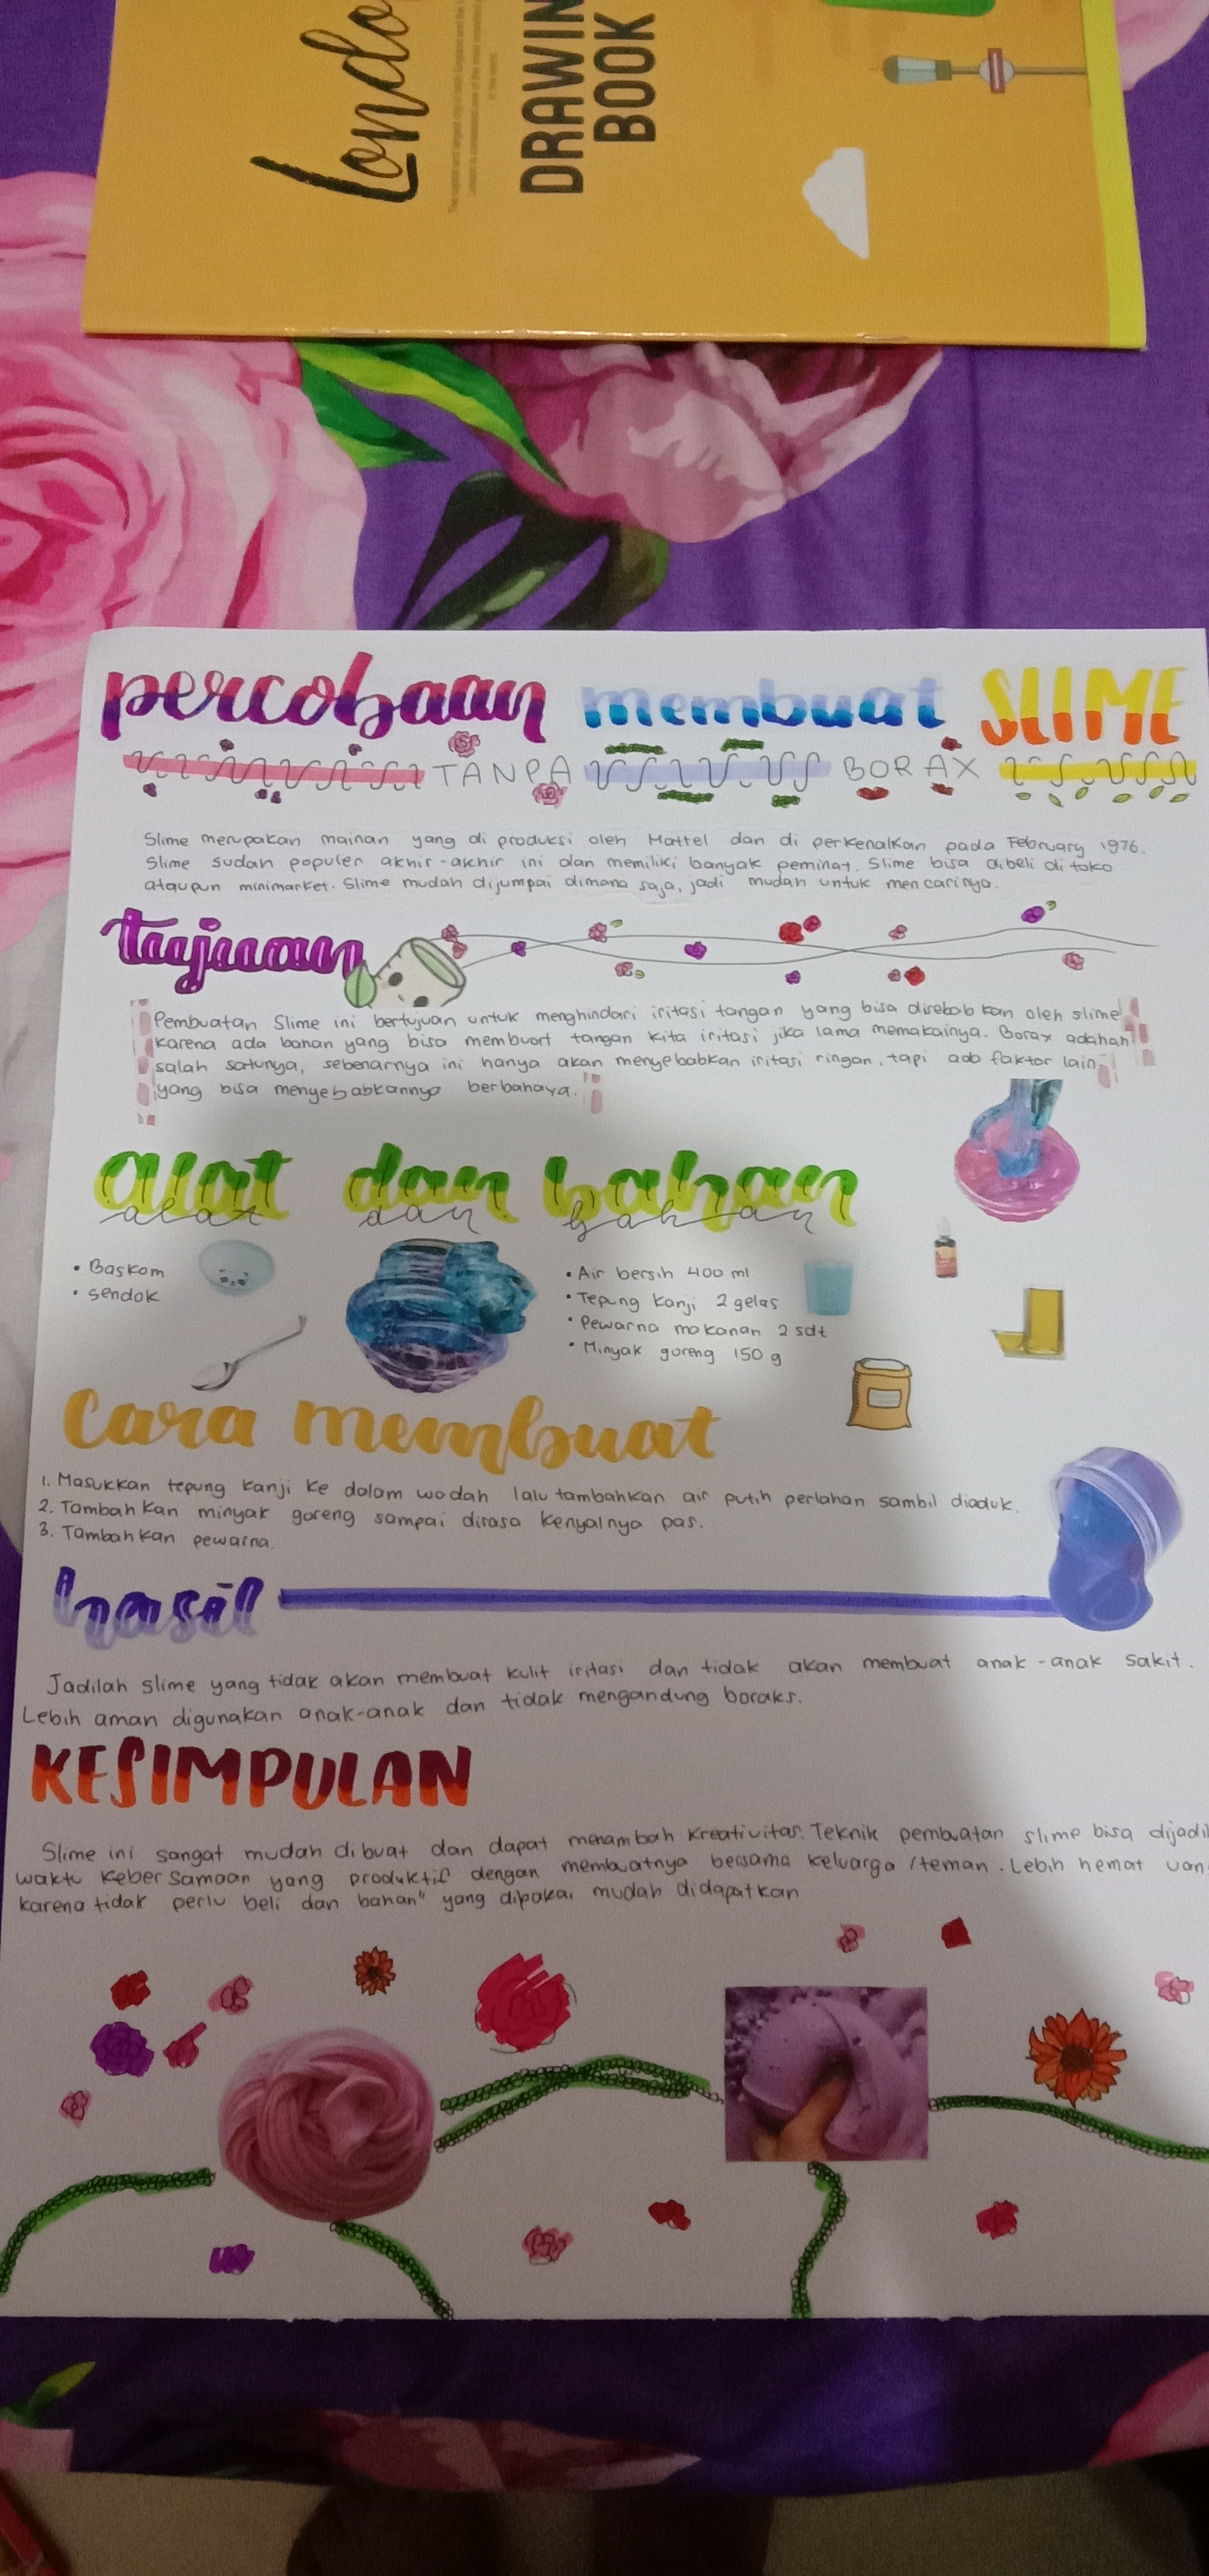 London
DRAWING
BOOK
percobaan membuat SLIME
TANPA BORAX
Slime merupakan mainan yang di produksi oleh Mattel dan di perkenalkan pada February 1976.
Slime sudah populer akhir-akhir ini dan memiliki banyak peminat. Slime bisa dibeli di toko
ataupun minimarket. Slime mudah dijumpai dimana saja, jadi mudah untuk mencarinya.
tujuan
Pembuatan Slime ini bertujuan untuk menghindari iritasi tangan yang bisa disebabkan oleh slime
karena ada bahan yang bisa membuat tangan kita iritasi jika lama memakainya. Borax adahan
salah satunya, sebenarnya ini hanya akan menyebabkan iritasi ringan, tapi ada faktor lain
yang bisa menyebabkannya berbahaya.
alat dan bahan
alat dan bahan
• Baskom
• sendok
• Air bersih 400 ml
• Tepung Kanji 2 gelas
• Pewarna makanan 2 sdt
• Minyak goreng 150 g
Cara membuat
1. Masukkan tepung kanji ke dalam wadah lalu tambahkan air putih perlahan sambil diaduk.
2. Tambahkan minyak goreng sampai dirasa kenyalnya pas.
3. Tambahkan pewarna.
hasil
Jadilah slime yang tidak akan membuat kulit iritasi dan tidak akan membuat anak-anak sakit.
Lebih aman digunakan anak-anak dan tidak mengandung boraks.
KESIMPULAN
Slime ini sangat mudah dibuat dan dapat menambah kreativitas. Teknik pembuatan slime bisa dijadi
waktu kebersamaan yang produktif dengan membuatnya bersama keluarga/teman. Lebih hemat uan
karena tidak perlu beli dan bahan" yang dipakai mudah didapatkan